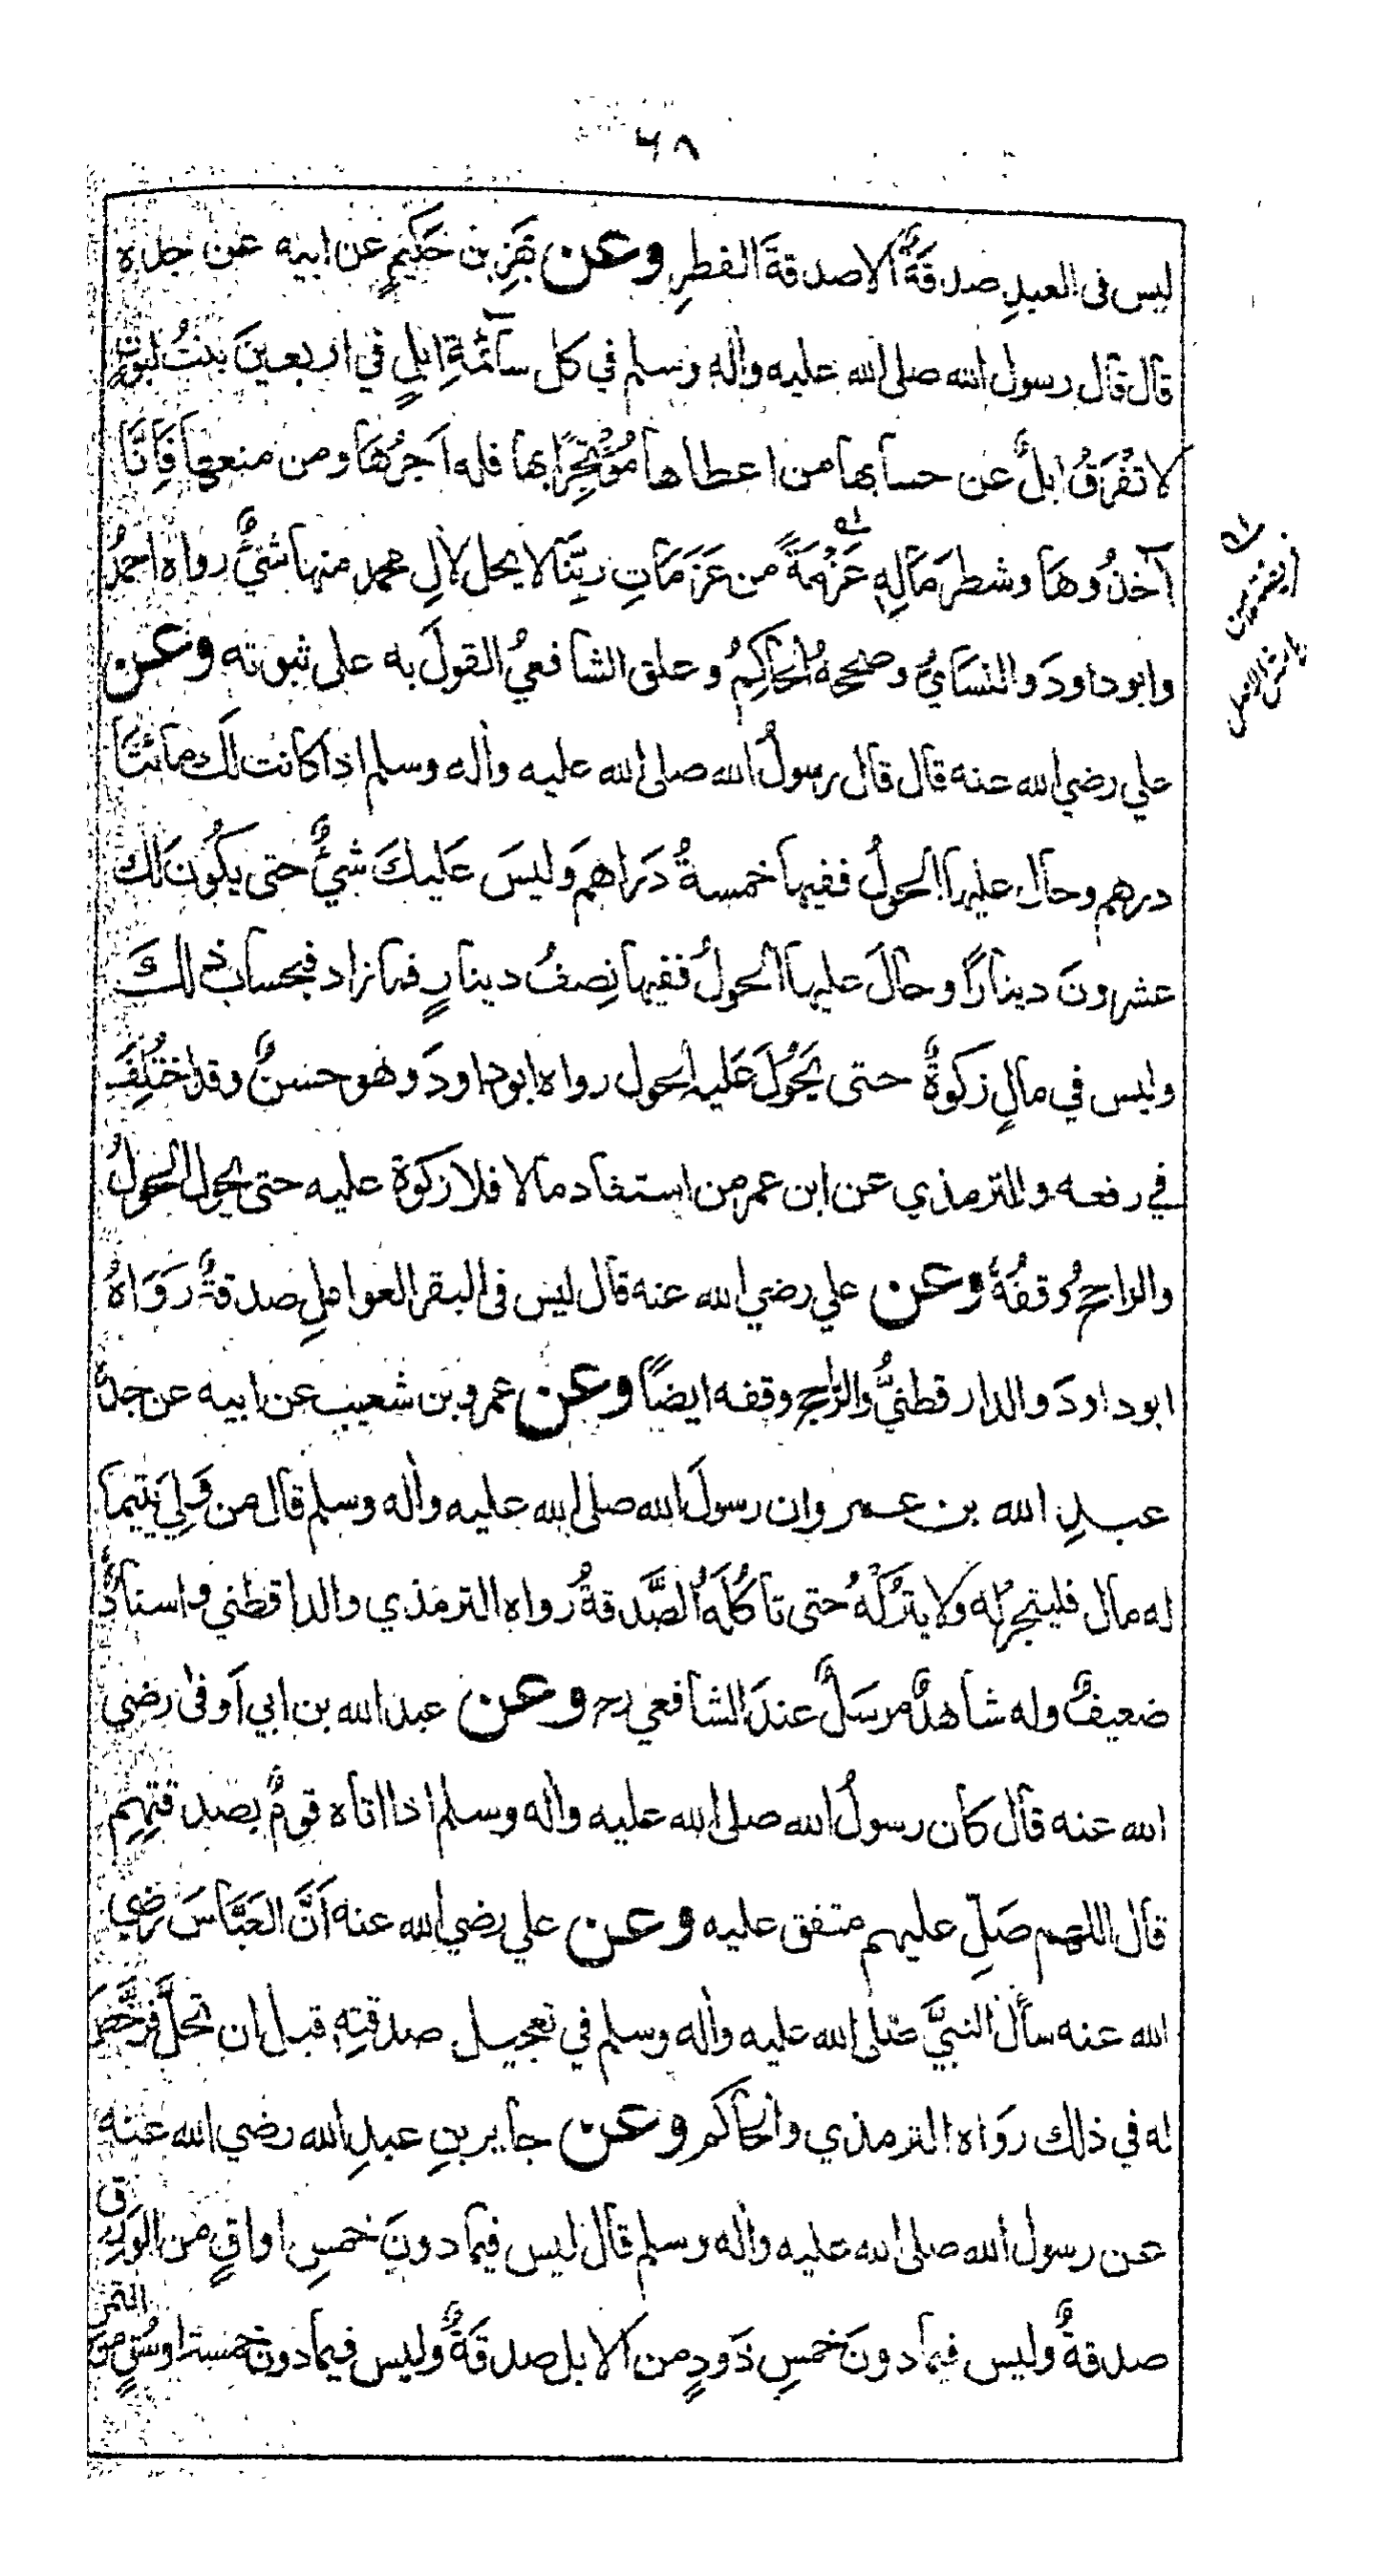 ٦٨
ليس فى العبدِ صدقَةٌ الا صدقةَ الفطرِ وعن بَهزِ بن حَكيمٍ عن ابيه عن جده
قال قال رسول الله صلى الله عليه واٰله وسلم في كل سآئمةِ ابلٍ في اربعينَ بنتُ لبونٍ
لا تفرَقُ ابلٌ عن حسابها من اعطاها مُؤتجِرًا بها فله اَجرُها ومن منعها فَاِنَّا
آخذُوها وشطرَ مَالِهٖ عَزْمَةً من عَزَمَاتِ ربِّنَا لا يحل لاٰلِ محمد منها شئٌ رواه احمدُ
وابو داودَ والنسَايُ وصححهُ الحاكِمُ وعلق الشافعيُ القولَ به على ثبوته وعن
علي رضي الله عنه قال قال رسولُ الله صلى الله عليه واٰله وسلم اذا كانت لك مائتَا
درهم وحال عليها الحولُ ففيها خمسةُ دَراهمَ وليسَ عَليكَ شيٌ حتى يكُونَ لك
عشرونَ دينارًا وحالَ عليها الحولُ ففيها نِصفُ دينارٍ فما زاد فبحساب ذلكَ
وليس في مالٍ زكوةٌ حتى يَحُوْلَ عَليه الحول رواه ابو داودَ وهو حسنٌ وقد اختُلِفَ
في رفعه وللترمذي عن ابن عمر من استفاد مالا فلا زكوة عليه حتى يحول الحولُ
والراجحُ وقفُهٗ وعن علي رضي الله عنه قال ليس فى البقر العواملِ صدقةٌ رَوَاهُ
ابو داودَ والدارقطنيُّ والراجح وقفه ايضًا وعن عمرو بن شعيب عن ابيه عن جدهٖ
عبدِ الله بن عمرو ان رسولَ الله صلى الله عليه واٰله وسلم قال من وَلِيَ يتيمًا
له مال فليتجر له ولا يترُكْهُ حتى تاكُلَهُ الصَّدقةُ رواه الترمذي والداقطني واسنادهٗ
ضعيفٌ وله شاهدٌ مرسَلٌ عندَ الشافعي رح وعن عبد الله بن ابي اَوفىٰ رضي
الله عنه قال كان رسولُ الله صلى الله عليه واٰله وسلم اذا اتاه قومٌ بصدقتِهِم
قال اللهم صَلِّ عليهم متفق عليه وعن علي رضي الله عنه اَنَّ العَبَّاسَ رضي
الله عنه سأل النبيَّ صَلى الله عليه واٰله وسلم في تعجيل صدقتِهٖ قبل ان تحلَّ فرَخَّصَ
له فى ذلك رَوَاه الترمذي والحاكم وعن جابر بنِ عبدِ الله رضي الله عنه
عن رسول الله صلى الله عليه واٰله وسلم قال ليس فيما دونَ خمسِ اواقٍ من الورِقِ
صدقةٌ وليس فيما دونَ خمسِ ذَودٍ من الابل صدقَةٌ وليس فيما دون خمسة اوسُقٍ من التمر